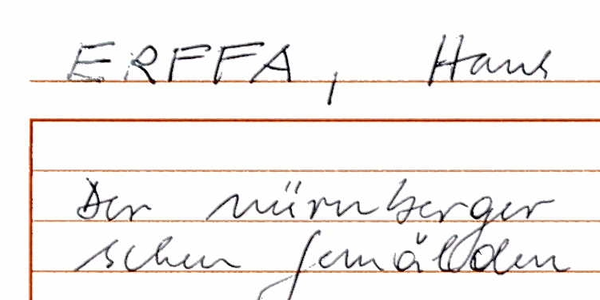 ERFFA, Hans
Der nürnberger
schen Gemälden